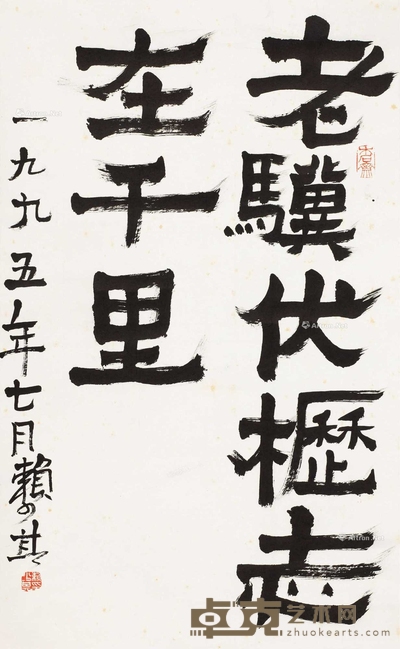 老驥伏櫪志
在千里
一九九五年七月賴少其
卓克艺术网
zhuokearts.com